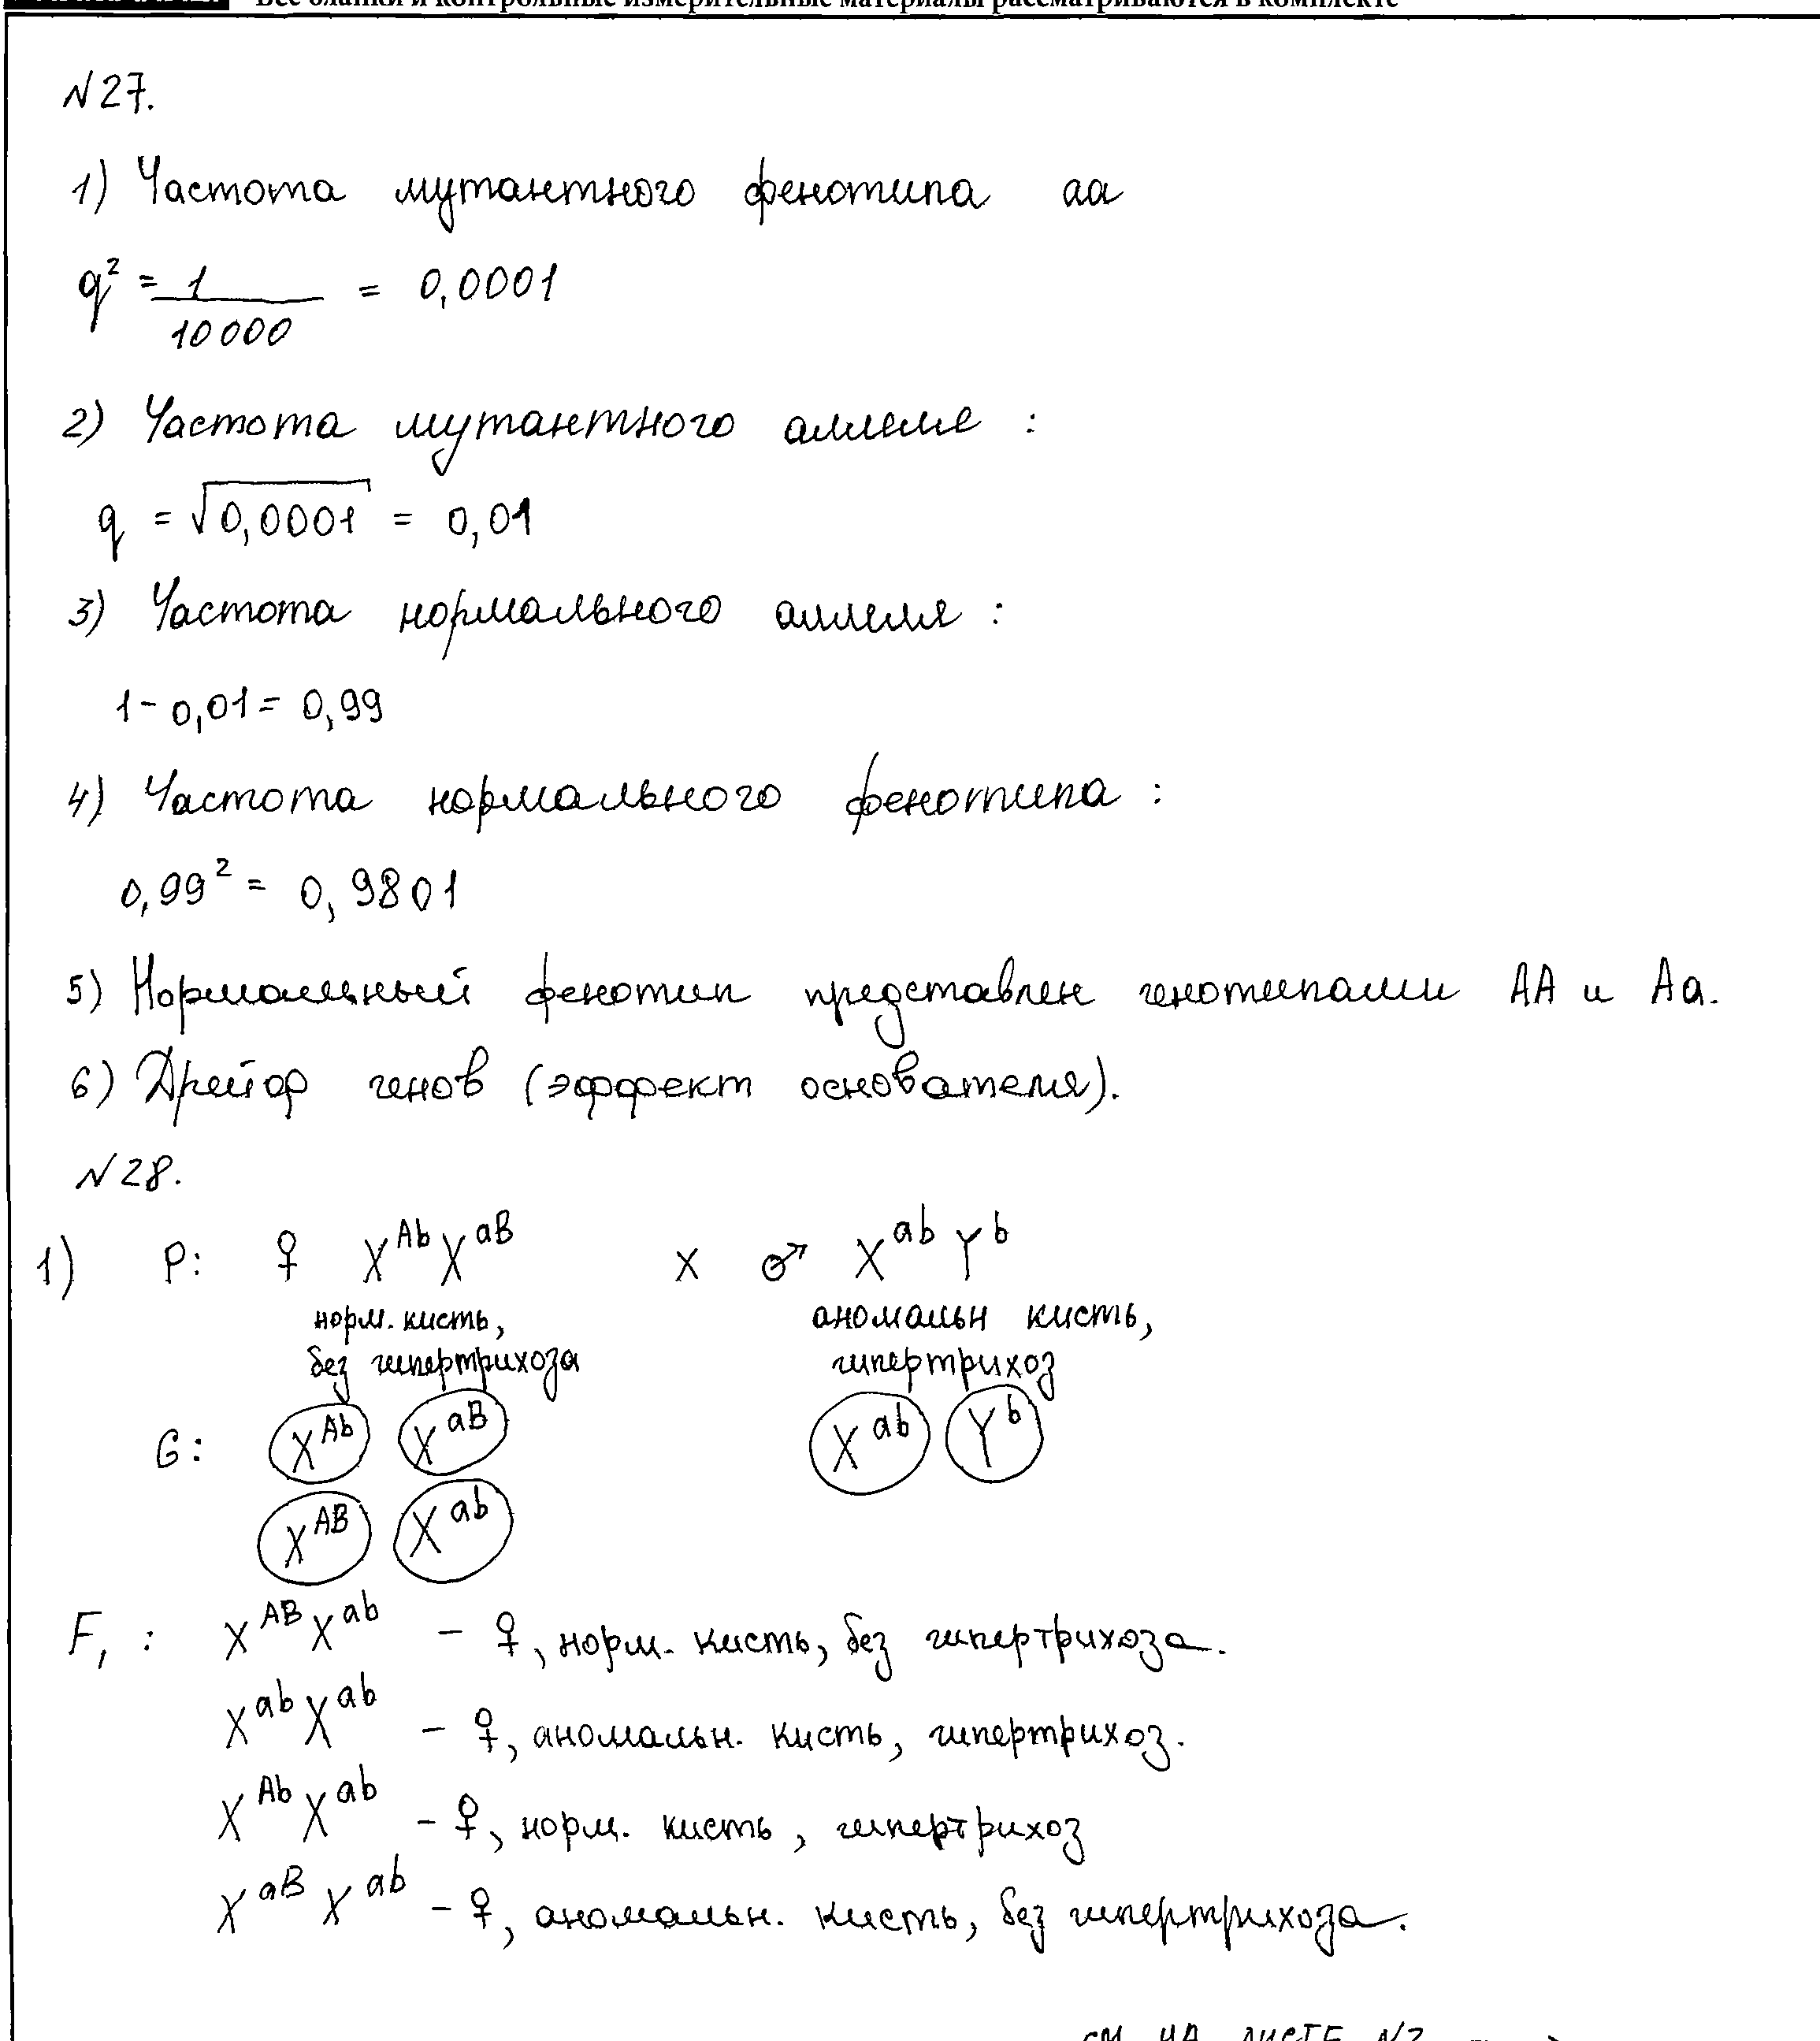 Все бланки и контрольные измерительные материалы рассматриваются в комплекте
№27.
1) Частота мутантного фенотипа aa
q² = 1/10000 = 0,0001
2) Частота мутантного аллеля :
q = √0,0001 = 0,01
3) Частота нормального аллеля :
1 - 0,01 = 0,99
4) Частота нормального фенотипа :
0,99² = 0,9801
5) Нормальный фенотип представлен генотипами AA и Aa.
6) Дрейф генов (эффект основателя).
№28.
1) P: ♀ X^Ab X^aB x ♂ X^ab Y^b
норм. кисть, аномальн кисть,
без гипертрихоза гипертрихоз
G: X^Ab X^aB X^ab Y^b
X^AB X^ab
F₁ : X^AB X^ab – ♀, норм. кисть, без гипертрихоза.
X^ab X^ab – ♀, аномальн. кисть, гипертрихоз.
X^Ab X^ab – ♀, норм. кисть, гипертрихоз
X^aB X^ab – ♀, аномальн. кисть, без гипертрихоза.
см. на листе №2